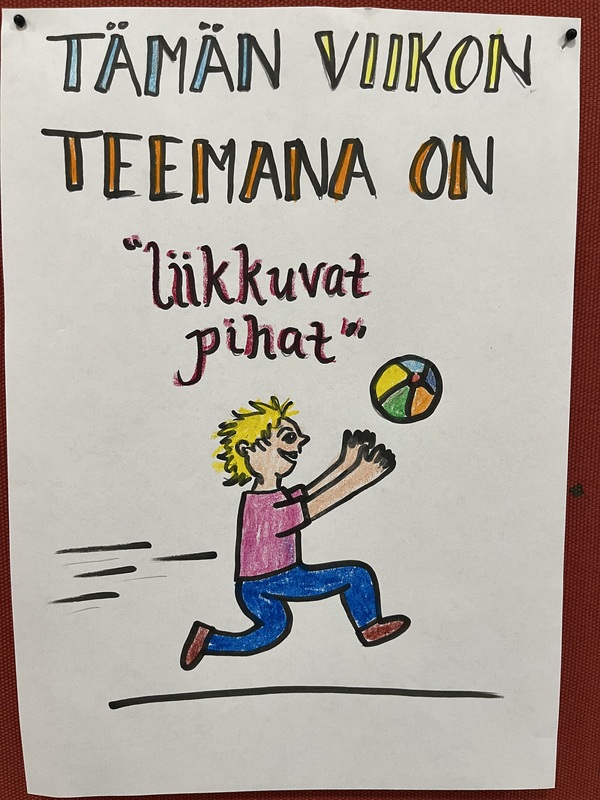 TÄMÄN VIIKON
TEEMANA ON
"liikkuvat
pihat"